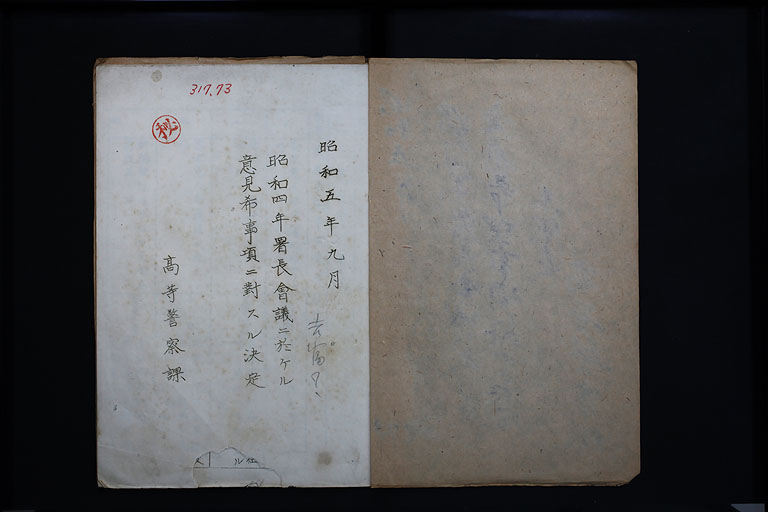 317.73
秘
昭和五年九月
昭和四年署長會議ニ於ケル
意見希事項ニ對スル決定
高等警察課